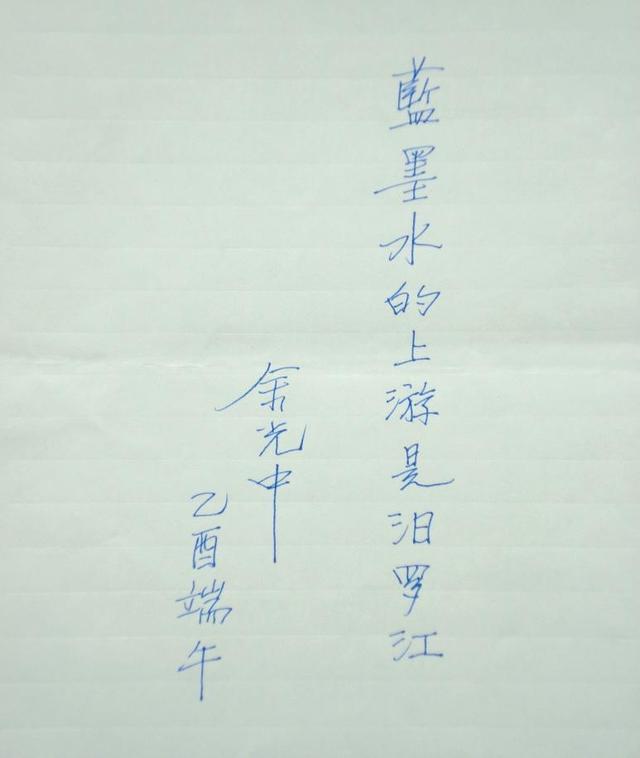 藍墨水的上游是汨罗江
余光中
乙酉端午